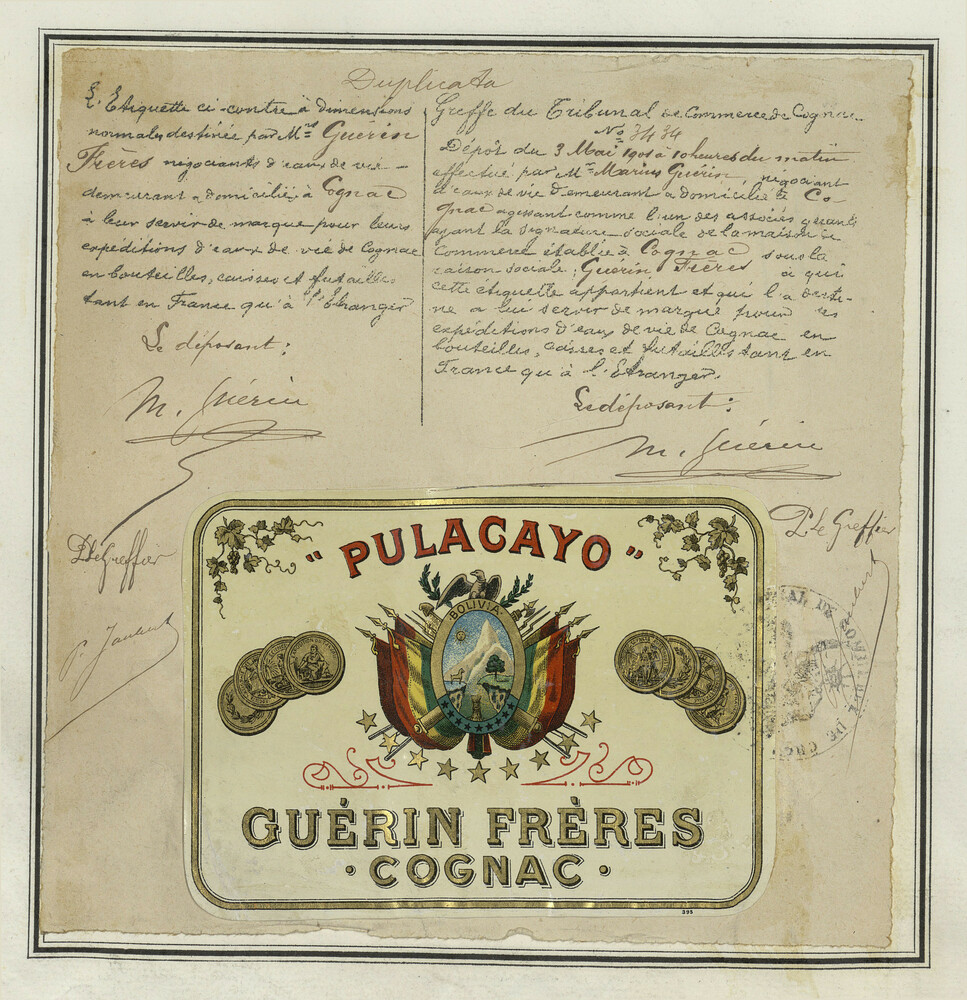 Duplicata
L'Etiquette ci-contre à dimensions
normales destinée par Mrs Guérin
Frères négociants d'eaux de vie
demeurant & domiciliés à Cognac
à leur servir de marque pour leurs
expéditions d'eaux de vie de Cognac
en bouteilles, caisses et futailles
tant en France qu'à l'Etranger
Le déposant:
M. Guérin
P. le Greffier
Greffe du Tribunal de Commerce de Cognac.
No 3434
Dépôt du 3 Mai 1901 à 10 heures du matin
effectué par Mr Marius Guérin, négociant
d'eaux de vie demeurant & domicilié à Co-
gnac agissant comme l'un des associés gérants
ayant la signature sociale de la maison de
commerce établie à Cognac sous la
raison sociale: Guérin Frères à qui
cette étiquette appartient et qui l'a desti-
née à lui servir de marque pour les
expéditions d'eaux de vie de Cognac en
bouteilles, caisses et futailles tant en
France qu'à l'Etranger.
Le déposant:
M. Guérin
P. le Greffier
"PULACAYO"
BOLIVIA
GUÉRIN FRÈRES
·COGNAC·
395